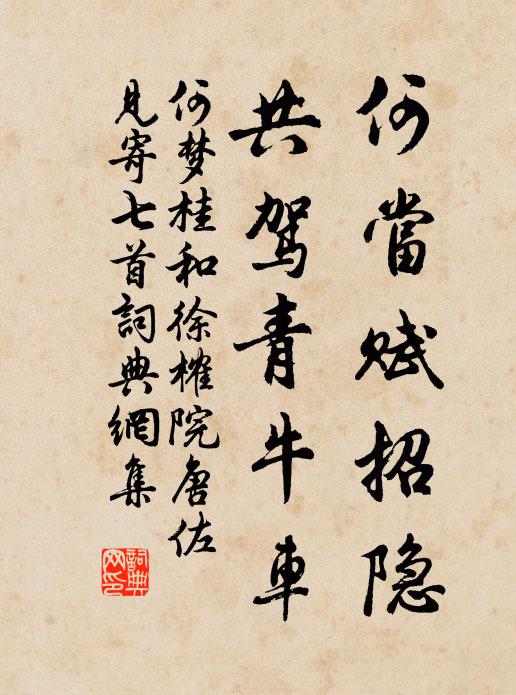 何當赋招隐
共驾青牛車
何梦桂和徐榷院唐佐
見寄七首詞典網集
詞典
网印